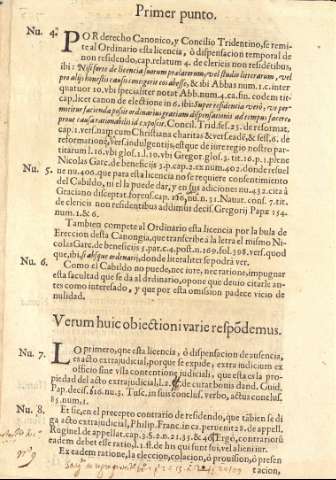 Primer punto.
Nu. 4. POR derecho Canonico, y Concilio Tridentino, se remi-
te al Ordinario esta licencia, ò dispensacion temporal de
non residendo, cap. relatum 4. de clericis non residẽtibus,
ibi: Nisi forte de licentia suorum prælatorum, vel studio literarum, vel
pro alijs honestis causis contigerit eos abesse, & ibi Abbas num. 1. c. inter
quatuor 10. vbi specialiter notat Abb. num. 4. ca. fin. eodem tit.
cap. licet canon de electione in 6. ibi: Super residentia verò, vt per-
mittitur facienda possit ordinarius gratiam dispensationis ad tempus facere,
prout causa rationabilis id exposcit. Concil. Trid. ses. 23. de reformat.
cap. 1. vers. nam cum Christiana charitas & vers. eadẽ, & sess. 6. de
reformatione, vers. indulgentijs, est que de iure regio nostro par-
titarum l. 16. vbi glos. 1. l. 10. vbi Gregor. glos. 3. tit. 16. p. 1. plene
Nicolas Garc. de beneficijs 3. p. cap. 2. ex num. 402. donde resuel
Nu. 5. ue nu. 400. que para esta licencia no se requiere consentimiento
del Cabildo, ni el la puede dar, y en sus adiciones nu. 432. cita à
Graciano disceptat. forens. cap. 216. nu. 31. Natur. cons. 7. tit.
de clericis non residentibus addimus decis. Gregorij Papæ 154.
num. 1. & 6.
Tambien compete al Ordinario esta licencia por la bula de
Ereccion desta Canongia, que transcriba à la letra el mismo Ni-
colas Garc. de beneficijs 5. par. c. 4. post n. 169. fol. 398. vers. quod
que, ibi, si absque ordinarij, donde literaliter se podrà ver.
Nu. 6. Como el Cabildo no puede, nec iure, nec ratione, impugnar
esta facultad que se da al ordinario, opone que deuio citarle an-
tes como interesado, y que por esta omission padece vicio de
nulidad.
Verum huic obiectioni varie respõdemus.
Nu. 7. LO primero, que esta licencia, ò dispensacion de ausencia,
es acto extrajudicial, porque se expide, extra iudicium ex
officio sine vlla contentione judiciali, que esta es la pro-
piedad del acto extrajudicial, l. 2. ff. de curat bonis dand. Guid.
Pap. decis. 616. nu. 3. Tusc. in suis conclus. verbo, actus conclus.
85. num. 1.
Nu. 8. Et sic, en el precepto contrario de residendo, que tãbien se di
ga acto extrajudicial, Philip. Franc. in ca. peruenit 2. de appell.
Roginel de appellat. cap. 3. §. 2. n. 21. 35. & 46. Ergò, contrariorũ
eadem debet esse ratio, l. 1. ff. de his qui sunt sui, vel alieni iur.
Ex eadem ratione, la eleccion, colacion, ò prouision, ò presen
tacion,